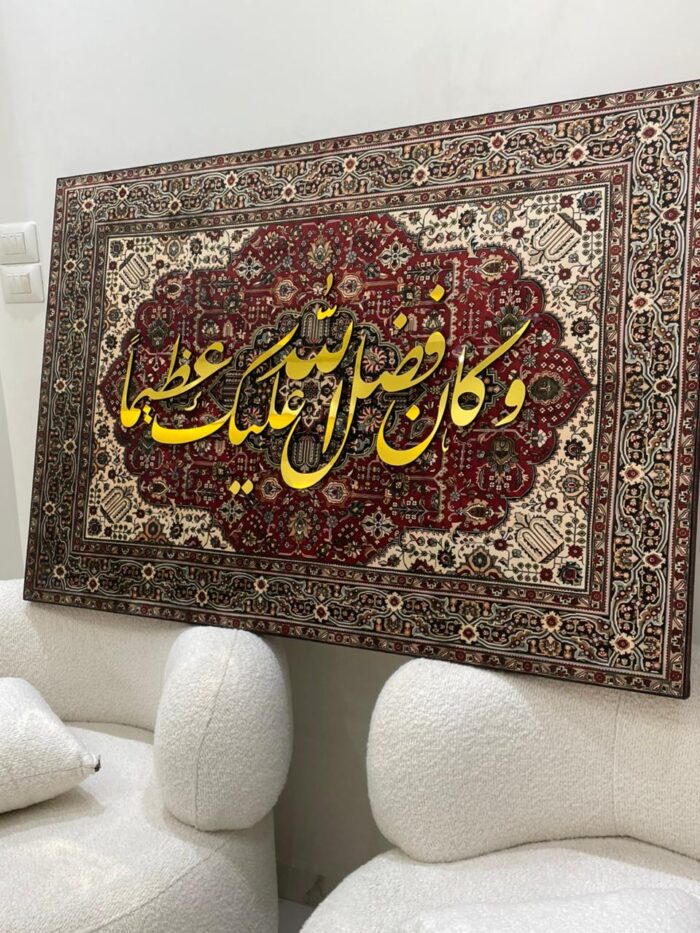 وكان فضل الله عليك عظيماً